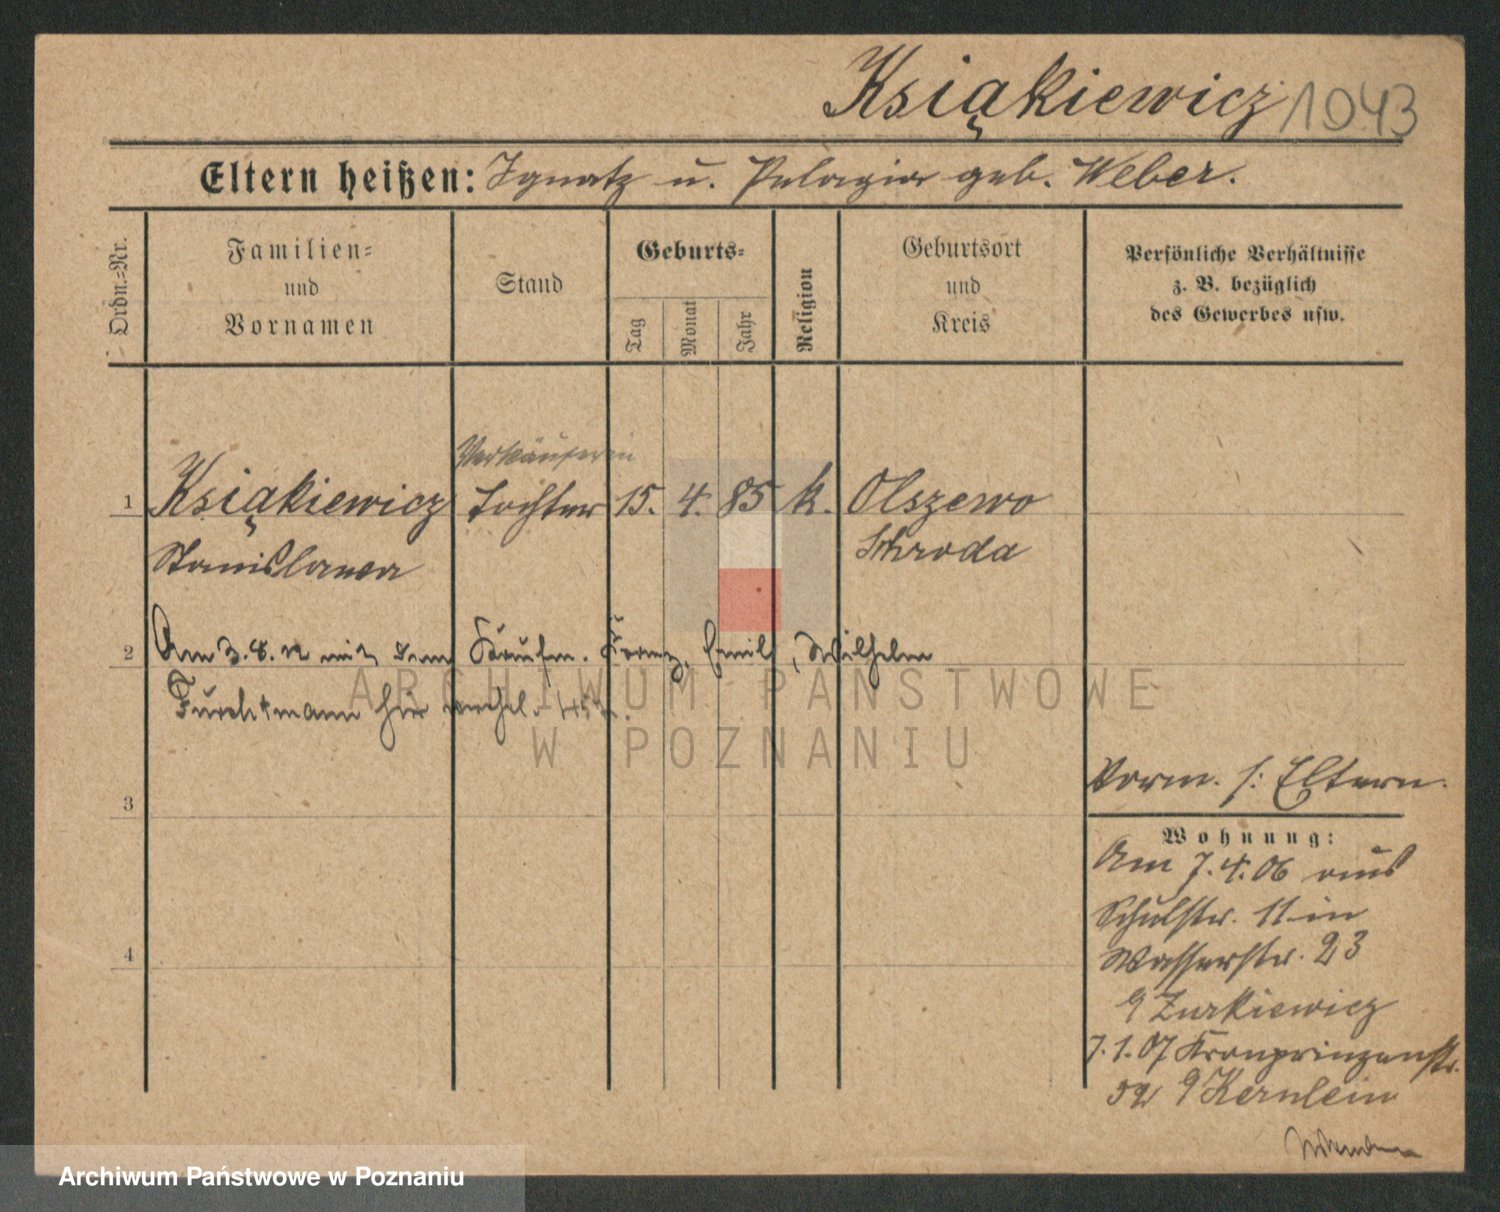 Książkiewicz 1043
Eltern heißen: Ignatz u. Pelagia geb. Weber.
Ordn.=Nr.
Familien=
und
Vornamen
Stand
Geburts=
Tag
Monat
Jahr
Religion
Geburtsort
und
Kreis
Persönliche Verhältnisse
z. B. bezüglich
des Gewerbes usw.
Verkäuferin
1 Książkiewicz Tochter 15. 4. 85 k. Olszewo
Stanislawa Schroda
2 Am 3.8.12 mit dem Kaufm. Franz, Emil, Wilhelm
Furchtmann hier verehel.
ARCHIWUM PAŃSTWOWE
W POZNANIU
Vorm. s: Eltern.
3
Wohnung:
Am 7.4.06 aus
Schulstr. 11 in
Wasserstr. 23
Zurkiewicz
4
7.1.07 Kronprinzenstr.
Kernlein
Archiwum Państwowe w Poznaniu